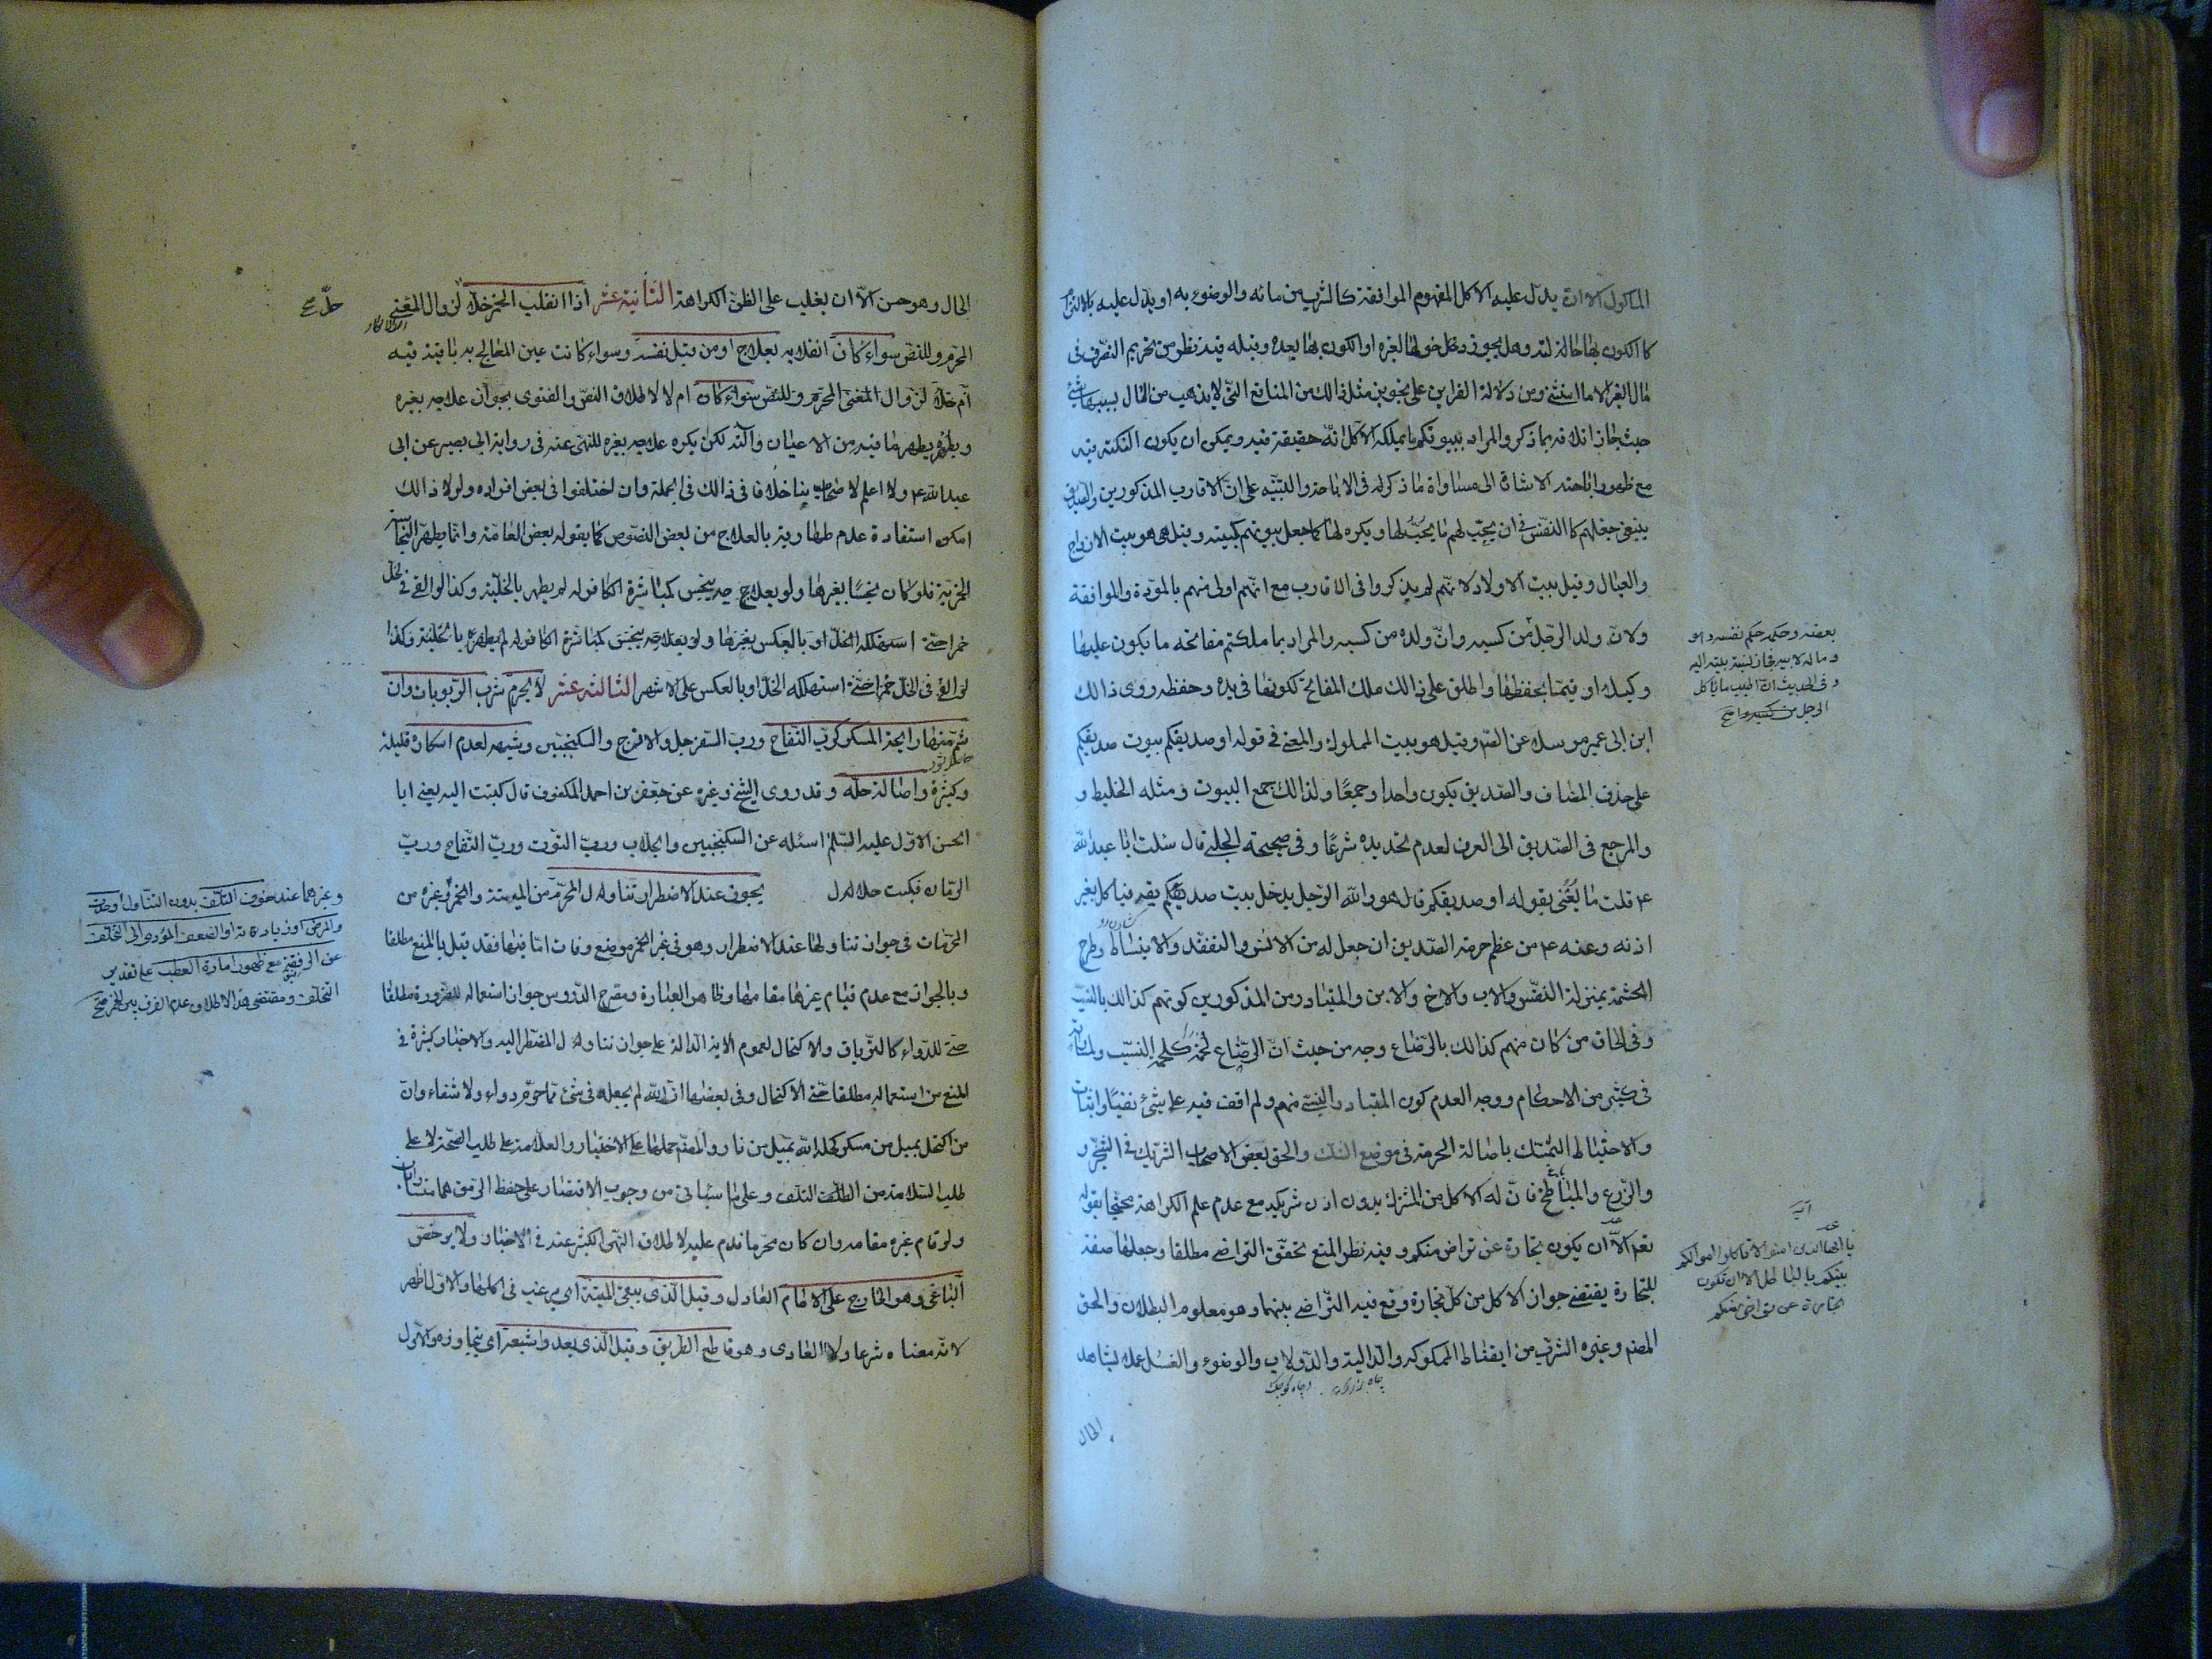 الماكول الا ان يدل عليه الاكل المفهوم الموافقة كالشرب من مائه والوضوء به او يدل عليه بالالتزام
كالكون بها حالته وهل يجوز دخولها لغيره او الكون بها بعده وقبله فيه نظر من تحريم التصرف فى
مال الغير الا ما استثنى ومن دلالة القراين على تجويز مثل ذالك من المنافع التى لا يذهب من المال بسببها شئ
حيث جاز اتلافه بما ذكر والمراد ببيوتكم ما يملكه الآكل لانه حقيقة فيه ويمكن ان يكون النكتة فيه
مع ظهور اباحته الاشارة الى مساواة ما ذكر له فى الاباحة والتنبيه على ان الاقارب المذكورين والصديق
ينبغى جعلهم كالنفس فى ان يحب لهم ما يحب لها ويكره لها كما جعل بيوتهم كبيته وقيل هى هو بيت الازواج
والعيال وقيل بيت الاولاد لانهم لم يذكروا فى الاقارب مع انهم اولى منهم بالمودة والموافقة
ولان ولد الرجل من كسبه وان ولده من كسبه والمراد بما ملكتم مفاتحه ما يكون عليها
وكيلا او قيما بحفظها واطلق على ذالك ملك المفاتح لكونها فى يده وحفظه روى ذالك
ابن ابى عمير مرسلا عن الصم وقيل هو بيت المملوك والمعنى فى قوله او صديقكم بيوت صديقكم
على حذف المضاف والصديق يكون واحدا وجمعا ولذالك جمع البيوت ومثله الخليط و
والمرجع فى الصديق الى العرف لعدم تحديده شرعا وفى صحيحة الحلبى قال سئلت ابا عبد الله
ع قلت ما يعنى بقوله او صديقكم قال هو والله الرجل يدخل بيت صديقكم فيأكل بغير
اذنه وعنه ع من عظم حرمة الصديق ان جعل له من الانس والتفقد والانبساط وطرح
الحشمة بمنزلة النفس والاب والاخ والابن والمتبادر من المذكورين كونهم كذالك بالنسب
وفى الحاق من كان منهم كذالك بالرضاع وجه من حيث ان الرضاع لحمة كلحمة النسب ولمساواته
فى كثير من الاحكام ووجه العدم كون المتبادر النسبى منهم ولم اقف فيه على شئ نفيا واثباتا
والاحتياط التمسك باصالة الحرمة فى موضع الشك والحق بعض الاصحاب الشريك فى الشجر و
والزرع والمباطخ فان له الاكل من المشترك بدون اذن شريكه مع عدم علم الكراهة محتجا بقوله
تعم الا ان يكون تجارة عن تراض منكم وفيه نظر لمنع تحقق التراضى مطلقا وجعلها صفة
للتجارة يقتضى جواز الاكل من كل تجارة وقع فيه التراضى بينهما وهو معلوم البطلان والحق
المصنم وغيره الشرب من القناة المملوكة والدالية والدولاب والوضوء والغسل عملا بشاهد
الحال
بعضه وحكمه حكم نفسه وهو
وماله لابيه فجاز نسبة بيته اليه
وفى الحديث ان اطيب ما يأكل
الرجل من كسبه واضح
آية
يا ايها الذين امنوا لا تأكلوا اموالكم
بينكم بالباطل الا ان تكون
تجارة عن تراض منكم
الحال وهو حسن الا ان يغلب على الظن الكراهة الثانية عشر اذا انقلب الخمر خلا لزوال المعنى
المحرم وللنص سواء كان انقلابه بعلاج او من قبل نفسه وسواء كانت عين المعالج به باقية فيه
ام لا لزوال المعنى المحرم وللنص سواء كان ام لا لاطلاق النص والفتوى بجواز علاجه بغيره
وبطهره يطهر ما فيه من الاعيان وآلته لكن يكره علاجه بغيره للنهى عنه فى رواية ابى بصير عن ابى
عبد الله ع ولا اعلم لاصحابنا خلافا فى ذالك فى الجملة وان اختلفوا فى بعض افراده ولولا ذالك
امكن استفادة عدم طهارته بالعلاج من بعض النصوص كما يقوله بعض العامة وانما يطهر النجاسة
الخمرية فلو كان نجسا بغيرها ولو بعلاجه بنجس كمباشرة الكافر له لم يطهر بالخلية وكذا لو القى فى الخل
خمرا حتى استهلكه الخل او بالعكس بغيرها ولو بعلاجه بنجس كمباشرة الكافر له لم يطهره بالخلية وكذا
لو القى فى الخل خمرا حتى استهلكه الخل او بالعكس على الاشهر الثالثة عشر لا يحرم شرب الربوبات وان
شم منها رايحة المسكر كرب التفاح ورب السفرجل والاترج والسكنجبين وشبهه لعدم اسكاره قليله
وكثيره واصالة حله وقد روى الشيخ وغيره عن جعفر بن احمد المكفوف قال كتبت اليه يعنى ابا
الحسن الاول عليه السلم اسئله عن السكنجبين والجلاب ورب التوت ورب التفاح ورب
الرمان فكتب حلال يجوز عند الاضطرار تناول المحرم من الميتة والخمر وغيره من
المحرمات فى جواز تناولها عند الاضطرار وهو فى غير الخمر موضع وفاق اما فيها فقد قيل بالمنع مطلقا
وبالجواز مع عدم قيام غيرها مقامها وظاهر العبارة ومصرح الدروس جواز استعماله للضرورة مطلقا
حتى للدواء كالترياق والاكتحال لعموم الاية الدالة على جواز تناول المضطر اليه والاخبار كثيرة فى
المنع من استعماله مطلقا حتى الاكتحال وفى بعضها ان الله لم يجعل فى شئ مما حرم دواء ولا شفاء وان
من اكتحل بميل من مسكر كحله الله بميل من نار والمصنم حملها على الاختيار والعلامة على طلب الصحة لا على
طلب السلامة من التلف وعلى ما سيأتى من وجوب الاقتصار على حفظ الرمق هما متساويان
ولو قام غيره مقامه وان كان محرما قدم عليه لاطلاق النهى الكثير عنه فى الاخبار ولا يرخص
الباغى وهو الخارج على الامام العادل وقيل الذى يبغى الميتة اى يرغب فى اكلها والاول اظهر
لانه معناه شرعا ولا العادى وهو قاطع الطريق وقيل الذى يعدو شبعه اى يتجاوزه والاول
وغيرهما عند خوف التلف بدون التناول او حدوث
المرض او زيادته او الضعف المؤدى الى التخلف
عن الرفقة مع ظهور امارة العطب على تقدير
التخلف ومقتضى هذا الاطلاق عدم الفرق بين الخمر صح